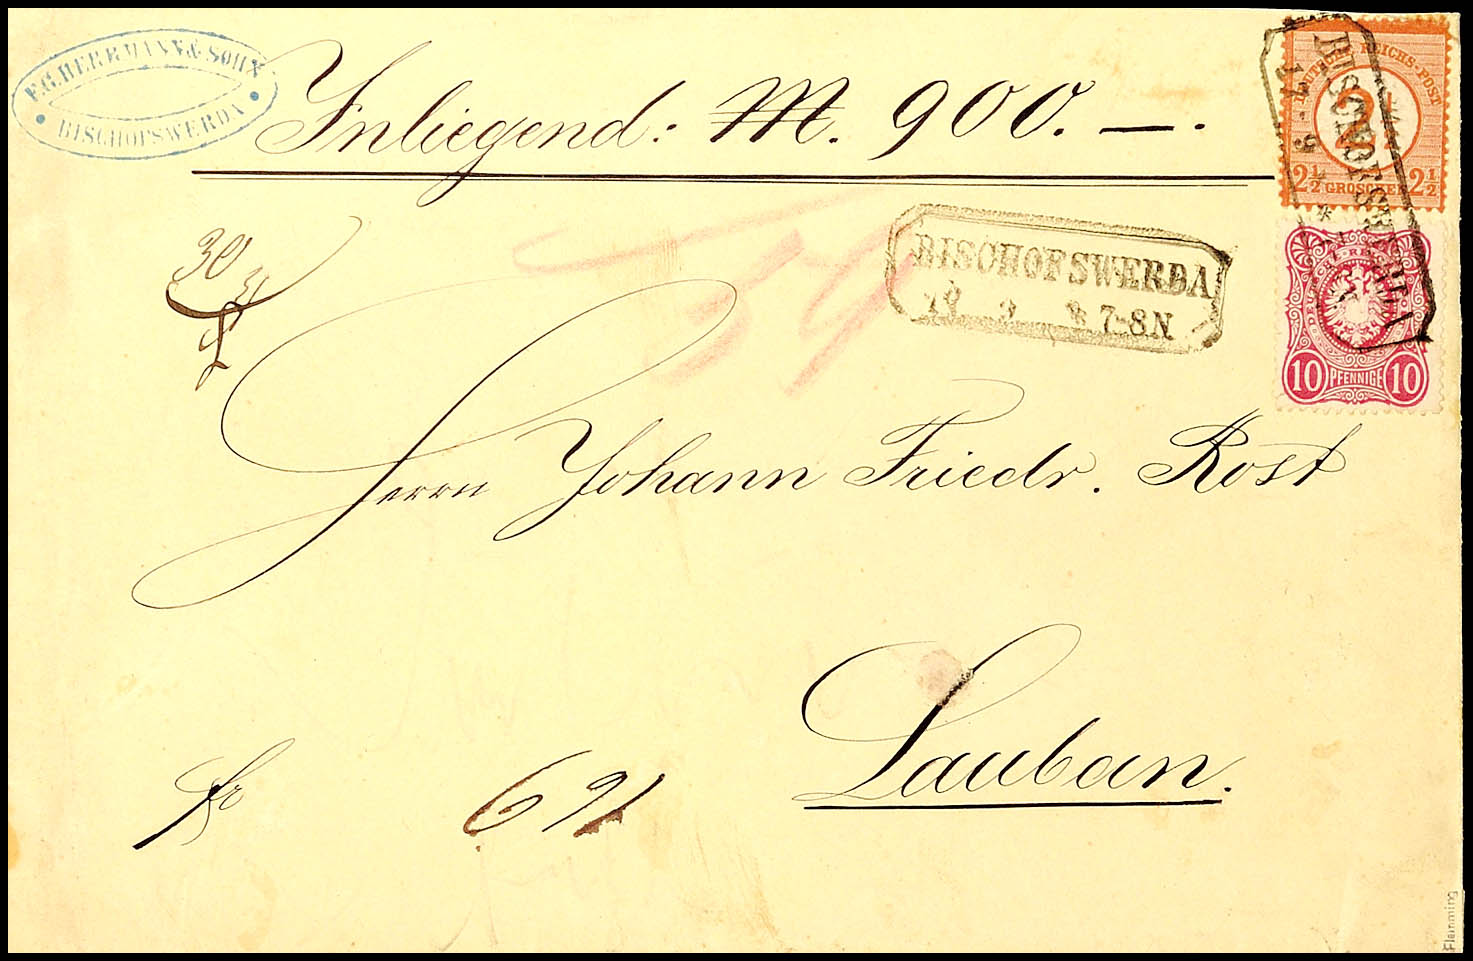 F.G. HERRMANN & SOHN
BISCHOFSWERDA
Inliegend: M. 900. —.
DEUTSCHE REICHS-POST
2½
2½ GROSCHEN 2½
BISCHOFSWERDA
BISCHOFSWERDA
7-8N
DEUTSCHE REICHS
10 PFENNIGE 10
30
59
Herrn Johann Friedr. Rost
Lauban.
fr
691
Flemming